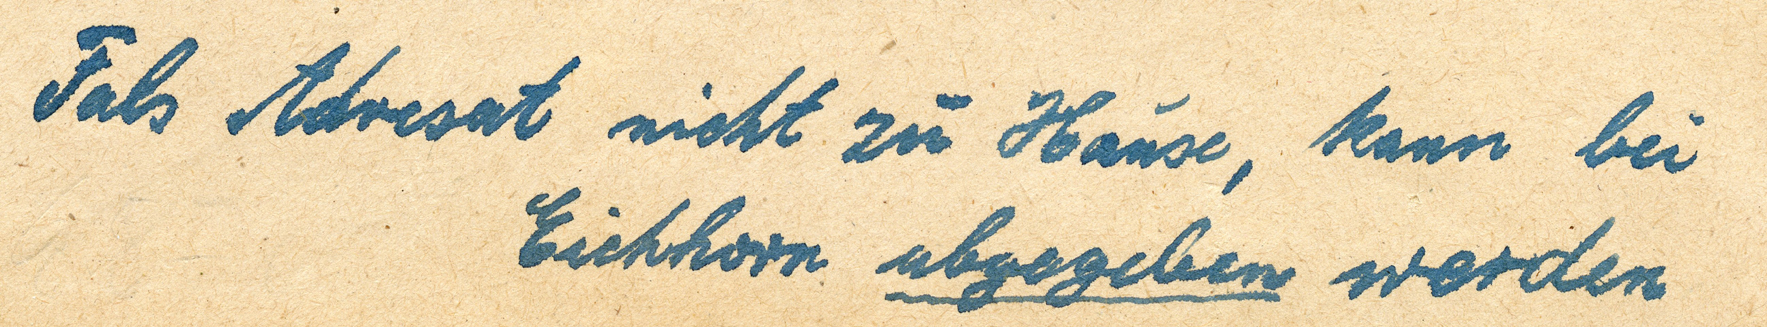 Fals Adresat nicht zu Hause, kann bei
Eichhorn abgegeben werden